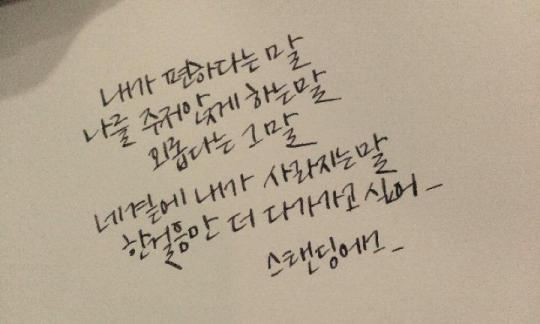 내가 편하다는 말
나를 주저앉게 하는말
외롭다는 그말
네곁에 내가 사라지는말
한걸음만 더 다가가고 싶어_
스탠딩에그_